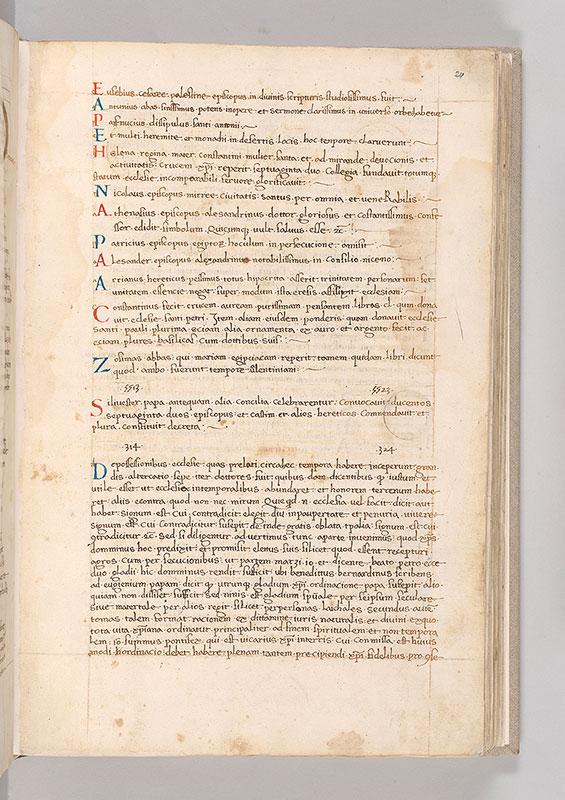 24
Eusebius · cesaree · palestine · episcopus · in divinis · scripturis · studiosissimus · fuit ·
Antunius · abas · sanctissimus · potens · inopere · et · sermone · clarissimus · in universo · orbe habetur
Pafnucius · discipulus · santi · antonii ·
Et · multi · heremite · et · monachi · in desertis · locis · hoc · tempore · claruerunt ·
Helena · regina · mater · constantini · mulier · santa · et · ad mirande · devocionis · et ·
activitatis · crucem · xpi · reperit · septuaginta · duo · collegia · fundavit · totumque
statum · ecclesie · incomparabili · fervore · glorificavit ·
Nicolaus · episcopus · mirree · civitatis · santus · per · omnia · et · vene Rabilis ·
Athenasius · episcopus · alesandrinus · dottor · gloriosus · et · costantissimus · confe
ssor · edidit · simbolum · Quicumque · vult · salvus · esse · etc ·
Patricius · episcopus · egiptor · hoculum · in persecucione · amisit ·
Alesander · episcopus · alexandrinus · notabilissimus · in · consilio · niceno ·
Arrianus · hereticus · pessimus · totus · hipocrita · asserit · trinitatem · personarum · set ·
unitatem · essencie · negat · super · modum · ista eresis · afflixit · ecclesiam ·
Constantinus · fecit · crucem · auream · purissimam · pensantem · libras · cl · quam · dona
vit · ecclesie · santi · petri · Item · aliam · eiusdem · ponderis · quam · donavit · ecclesie
santi · pauli · plurima · eciam · alia · ornamenta · ex · auro · et · argento · fecit · ac ·
eciam · plures · basilicas · cum · dottibus · suis ·
Zosimas · abbas · qui · mariam · egipciacam · reperit · tamen · quidam · libri · dicunt
quod · ambo · fuerunt · tempore · valentiniani ·
· 5513 · · 5523 ·
Silivester · papa · antequam · alia · concilia · celebrarentur · convocavit · ducentos
septuaginta · duos · episcopus · et · castim · et · alios · hereticos · Comendavit · et ·
plura · constituit · decreta ·
· 314 · · 324 ·
De possessionibus · ecclesie · quas · prelati · circa hec · tempora · habere · inceperunt · gran
dis · altercatio · sepe · iter · dottores · fuit · quibusdam · dicentibus · quod · iustum · et ·
utile · esset · ut · ecclesia · in temporalibus · abundaret · et · honorem · terrenum · habe
ret · aliis · econtra · quod · non · nec · mirum · Quicquid · enim · ecclesia · vel · facit · dicit · aut ·
habet · signum · est · Cui · contradicit · elegit · diu · inpaupertate · et · penuria · vivere ·
signum · est · Cui · contradicitur · suscepit · deinde · gratis · oblata · tpalia · signum · est · cui ·
contradicitur · etc · Sed · si · diligenter · ad vertimus · tunc · aparte · invenimus · quod · xps ·
domminus · hoc · predixit · et · promisit · elenus · suis · silicet · quod · essent · recepturi ·
agros · cum · persecucionibus · ut · partem · mat · 31 · 10 · et · dicente · beato · petro · ecce ·
duo · gladii · hic · domminus · rendit · sufficit · ubi · benedittus · bernardinus · scribens ·
ad · eugenium · papam · dicit · quod · utrunque · gladium · xpi · ordinacione · papa · suscepit · alio
quiam · non · dissset · sufficit · sed · nimis · est · gladium · spuale · per · seipsum · seculare ·
sive · materiale · per · alios · regit · silicet · per personas · laichales · secundus · aute
tomas · talem · format · racionem · ex · dittamine · iuris · naturalis · et · divini · ex quo
tota · vita · xpiana · ordinatur · principaliter · ad finem · spiritualem · et · non · tempora
lem · io · sumus · pontifex · qui · est · vicarius · xpi · interris · cui · comissa · est · huius
modi · hordinacio · debet · habere · plenam · tantem · precipiendi · xpi · fidelibus · pro · gre